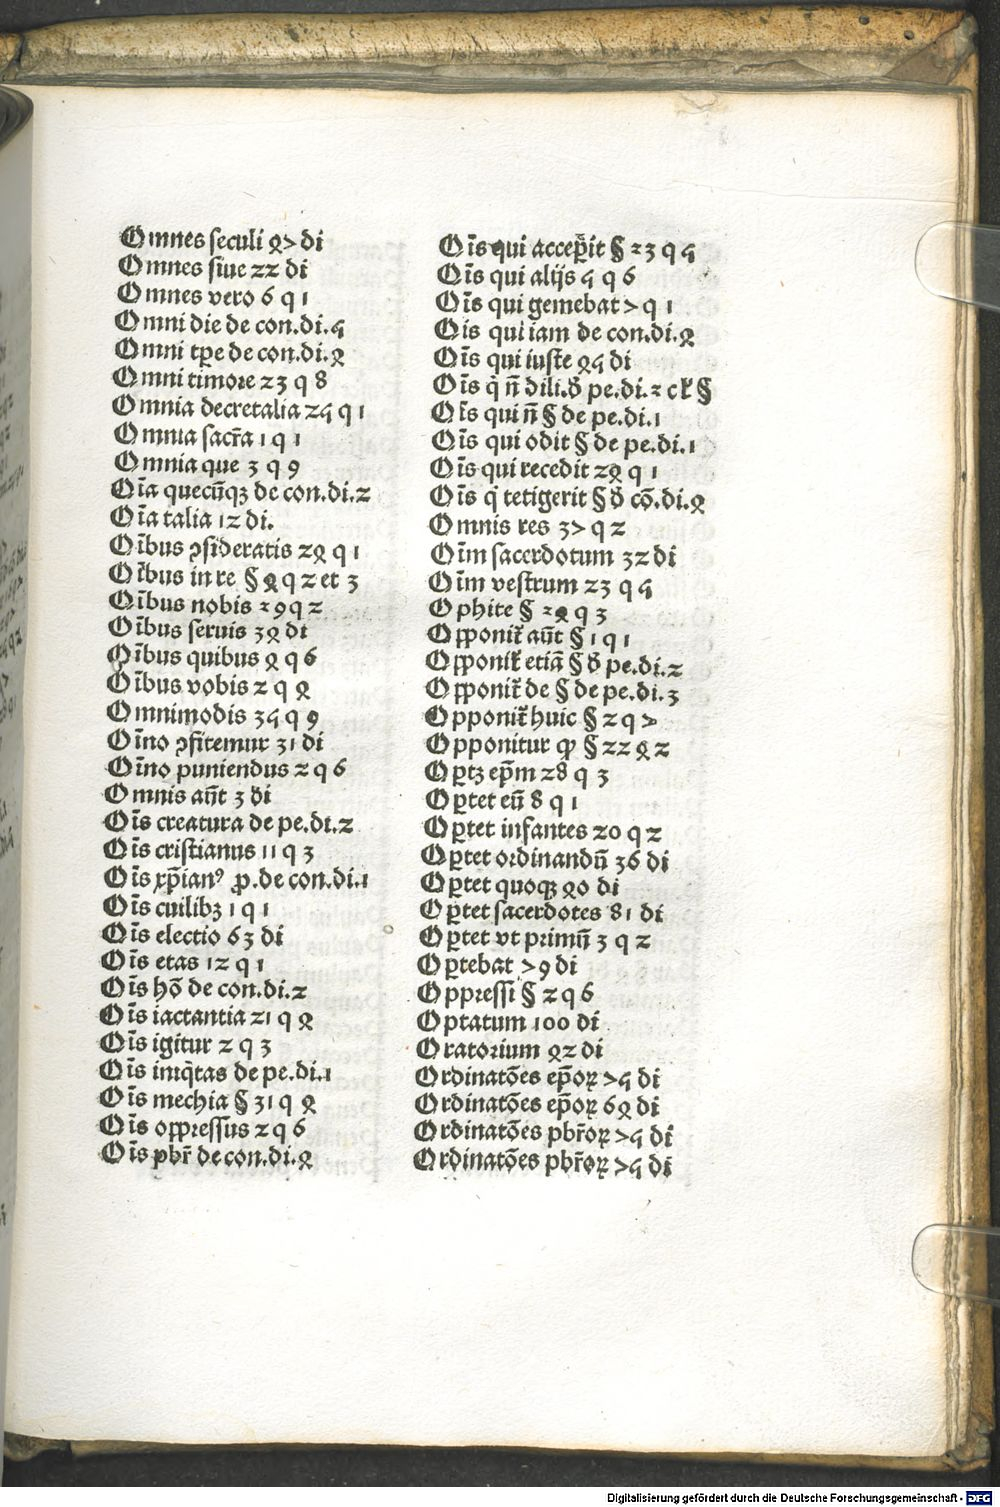 Omnes seculi 97 di
Omnes siue 22 di
Omnes vero 6 q 1
Omni die de con.di.5
Omni tꝑe de con.di.4
Omni timore 23 q 8
Omnia decretalia 25 q 1
Omnia sacr̄a 1 q 1
Omnia que 3 q 9
Oīa quecūqꝫ de con.di.2
Oīa talia 12 di.
Oībus ꝯsideratis 24 q 1
Oībus in re § 4 q 2 et 3
Oībus nobis 29 q 2
Oībus seruis 34 di
Oībus quibus 4 q 6
Oībus vobis 2 q 4
Omnimodis 35 q 9
Oīno ꝯfitemur 31 di
Oīno puniendus 2 q 6
Omnis aūt 3 di
Oīs creatura de pe.di.2
Oīs cristianus 11 q 3
Oīs xp̄ianꝰ ꝓ.de con.di.1
Oīs cuilibꝫ 1 q 1
Oīs electio 63 di
Oīs etas 12 q 1
Oīs hō de con.di.2
Oīs iactantia 21 q 4
Oīs igitur 2 q 3
Oīs iniq̄tas de pe.di.1
Oīs mechia § 31 q 4
Oīs opp̄ressus 2 q 6
Oīs pbr̄ de con.di.4
Oīs qui acceꝑit § 23 q 5
Oīs qui alijs 5 q 6
Oīs qui gemebat 7 q 1
Ois qui iam de con.di.4
Oīs qui iuste 45 di
Oīs q̇ n̄ dili. pe.di.
Oīs qui n̄ § de pe.di.1
Oīs qui odit § de pe.di.1
Oīs qui recedit 24 q 1
Oīs q̇ tetigerit § đ cō.di.4
Omnis res 37 q 2
Oīm sacerdotum 32 di
Oīm vestrum 23 q 5
Ophite § 24 q 3
Opponit̄ aūt § 1 q 1
Opponit̄ etiā § đ pe.di.2
Opponit̄ de § de pe.di.3
Opponit̄ huic § 2 q 7
Opponitur ꝙ § 22 q 2
Oꝑtꝫ ep̄m 28 q 3
Oꝑtet eū 8 q 1
Oꝑtet infantes 20 q 2
Oꝑtet ordinandū 36 di
Oꝑtet quoqꝫ 40 di
Oꝑtet sacerdotes 81 di
Oꝑtet vt primū 3 q 2
Oꝑtebat 79 di
Oppressi § 2 q 6
Optatum 100 di
Oratorium 42 di
Ordinatōes ep̄oꝝ 75 di
Ordinatōes ep̄oꝝ 64 di
Ordinatōes pbr̄oꝝ 75 di
Ordinatōes pbr̄oꝝ 75 di
Digitalisierung gefördert durch die Deutsche Forschungsgemeinschaft - DFG